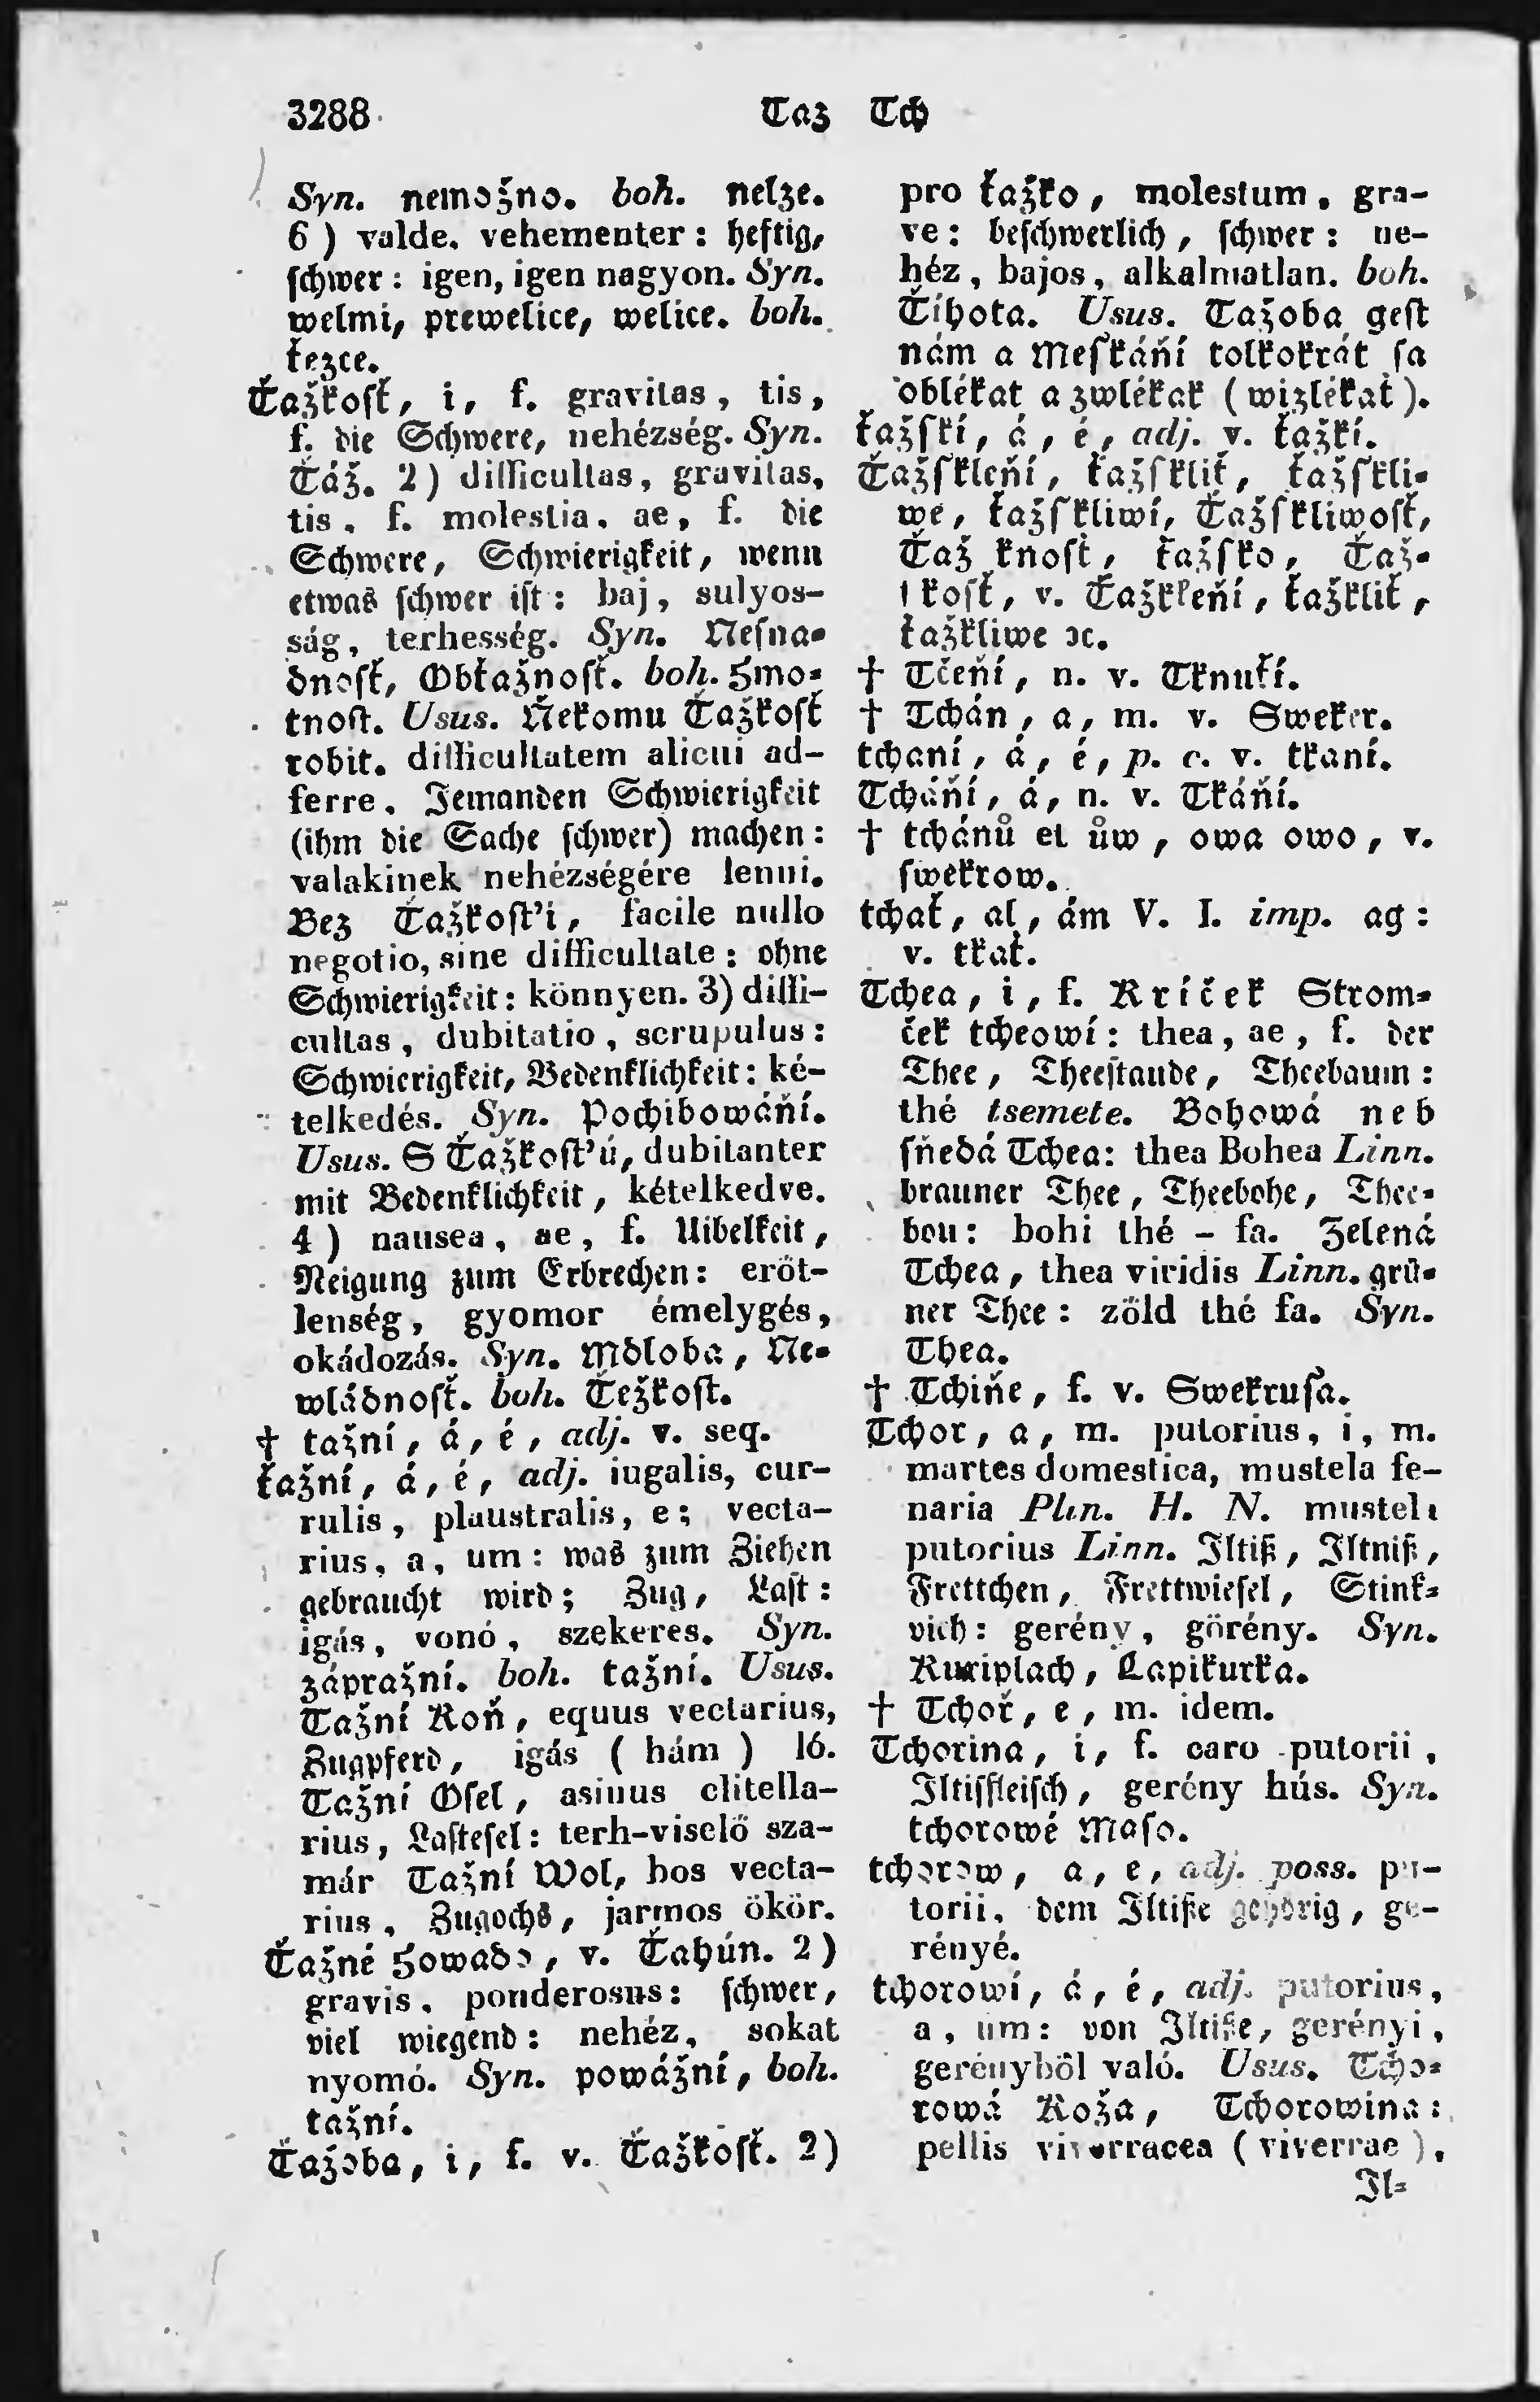 3288
Taz Tch
Syn. nemožno. boh. nelze.
6) valde, vehementer: heftig,
schwer: igen, igen nagyon. Syn.
welmi, prewelice, welice. boh.
ťezce.
Ťažkosť, i, f. gravitas, tis,
f. die Schwere, nehézség. Syn.
Ťáž. 2) difficultas, gravitas,
tis, f. molestia, ae, f. die
Schwere, Schwierigkeit, wenn
etwas schwer ist: baj, sulyos-
ság, terhesség. Syn. Nesna-
dnosť, Obťažnosť. boh. Smo-
tnost. Usus. Ňekomu Ťažkosť
robit. difficultatem alicui ad-
ferre, Jemanden Schwierigkeit
(ihm die Sache schwer) machen:
valakinek nehézségére lenni.
Bez Ťažkosť'i, facile nullo
negotio, sine difficultate: ohne
Schwierigkeit: könnyen. 3) diffi-
cultas, dubitatio, scrupulus:
Schwierigkeit, Bedenklichkeit: ké-
telkedés. Syn. Pochibowáňí.
Usus. S Ťažkosť'ú, dubitanter
mit Bedenklichkeit, kételkedve.
4) nausea, ae, f. Uibelkeit,
Neigung zum Erbrechen: eröt-
lenség, gyomor émelygés,
okádozás. Syn. Mdloba, Ne-
wládnosť. boh. Težkost.
† tažní, á, é, adj. v. seq.
ťažní, á, é, adj. iugalis, cur-
rulis, plaustralis, e; vecta-
rius, a, um: was zum Ziehen
gebraucht wird; Zug, Last:
igás, vonó, szekeres. Syn.
zápražní. boh. tažní. Usus.
Tažní Koň, equus vectarius,
Zugpferd, igás (hám) ló.
Tažní Osel, asinus clitella-
rius, Lastesel: terh-viselő sza-
már Tažní Wol, bos vecta-
rius, Zugochs, jarmos ökör.
Ťažné Howado, v. Ťahún. 2)
gravis, ponderosus: schwer,
viel wiegend: nehéz, sokat
nyomó. Syn. powážní, boh.
tažní.
Ťažoba, i, f. v. Ťažkosť. 2)
pro ťažko, molestum, gra-
ve: beschwerlich, schwer: ne-
héz, bajos, alkalmatlan. boh.
Ťíhota. Usus. Tažoba gest
nám a Meskáňí tolkokrát sa
oblékat a zwlékak (wizlékat).
ťažskí, á, é, adj. v. ťažkí.
Ťažskleňí, ťažskliť, ťažskli-
we, ťažskliwí, Ťažskliwosť,
Ťaž knosť, ťažsko, Ťaž-
skosť, v. Ťažkleňí, ťažkliť,
ťažkliwe ꝛc.
† Tčeňí, n. v. Tknuťí.
† Tchán, a, m. v. Sweker.
tchaní, á, é, p. c. v. tkaní.
Tcháňí, á, n. v. Tkáňí.
† tchánů et ůw, owa owo, v.
swekrow.
tchať, al, ám V. I. imp. ag:
v. tkať.
Tchea, i, f. Kríček Strom-
ček tcheowí: thea, ae, f. der
Thee, Theestaude, Theebaum:
thé tsemete. Bohowá neb
sňedá Tchea: thea Bohea Linn.
brauner Thee, Theebohe, Thee-
bou: bohi thé - fa. Zelená
Tchea, thea viridis Linn. grü-
ner Thee: zöld thé fa. Syn.
Thea.
† Tchiňe, f. v. Swekrusa.
Tchor, a, m. putorius, i, m.
martes domestica, mustela fe-
naria Plin. H. N. mustela
putorius Linn. Iltiß, Iltniß,
Frettchen, Frettwiesel, Stink-
vieh: gerény, görény. Syn.
Kuriplach, Lapikurka.
† Tchoř, e, m. idem.
Tchorina, i, f. caro putorii,
Iltisfleisch, gerény hús. Syn.
tchorowé Maso.
tchorow, a, e, adj. poss. pu-
torii, dem Iltiße gehörig, ge-
rényé.
tchorowí, á, é, adj. putorius,
a, um: von Iltiße, gerényi,
gerényböl való. Usus. Tcho-
rowá Koža, Tchorowina:
pellis viverracea (viverrae),
Il-